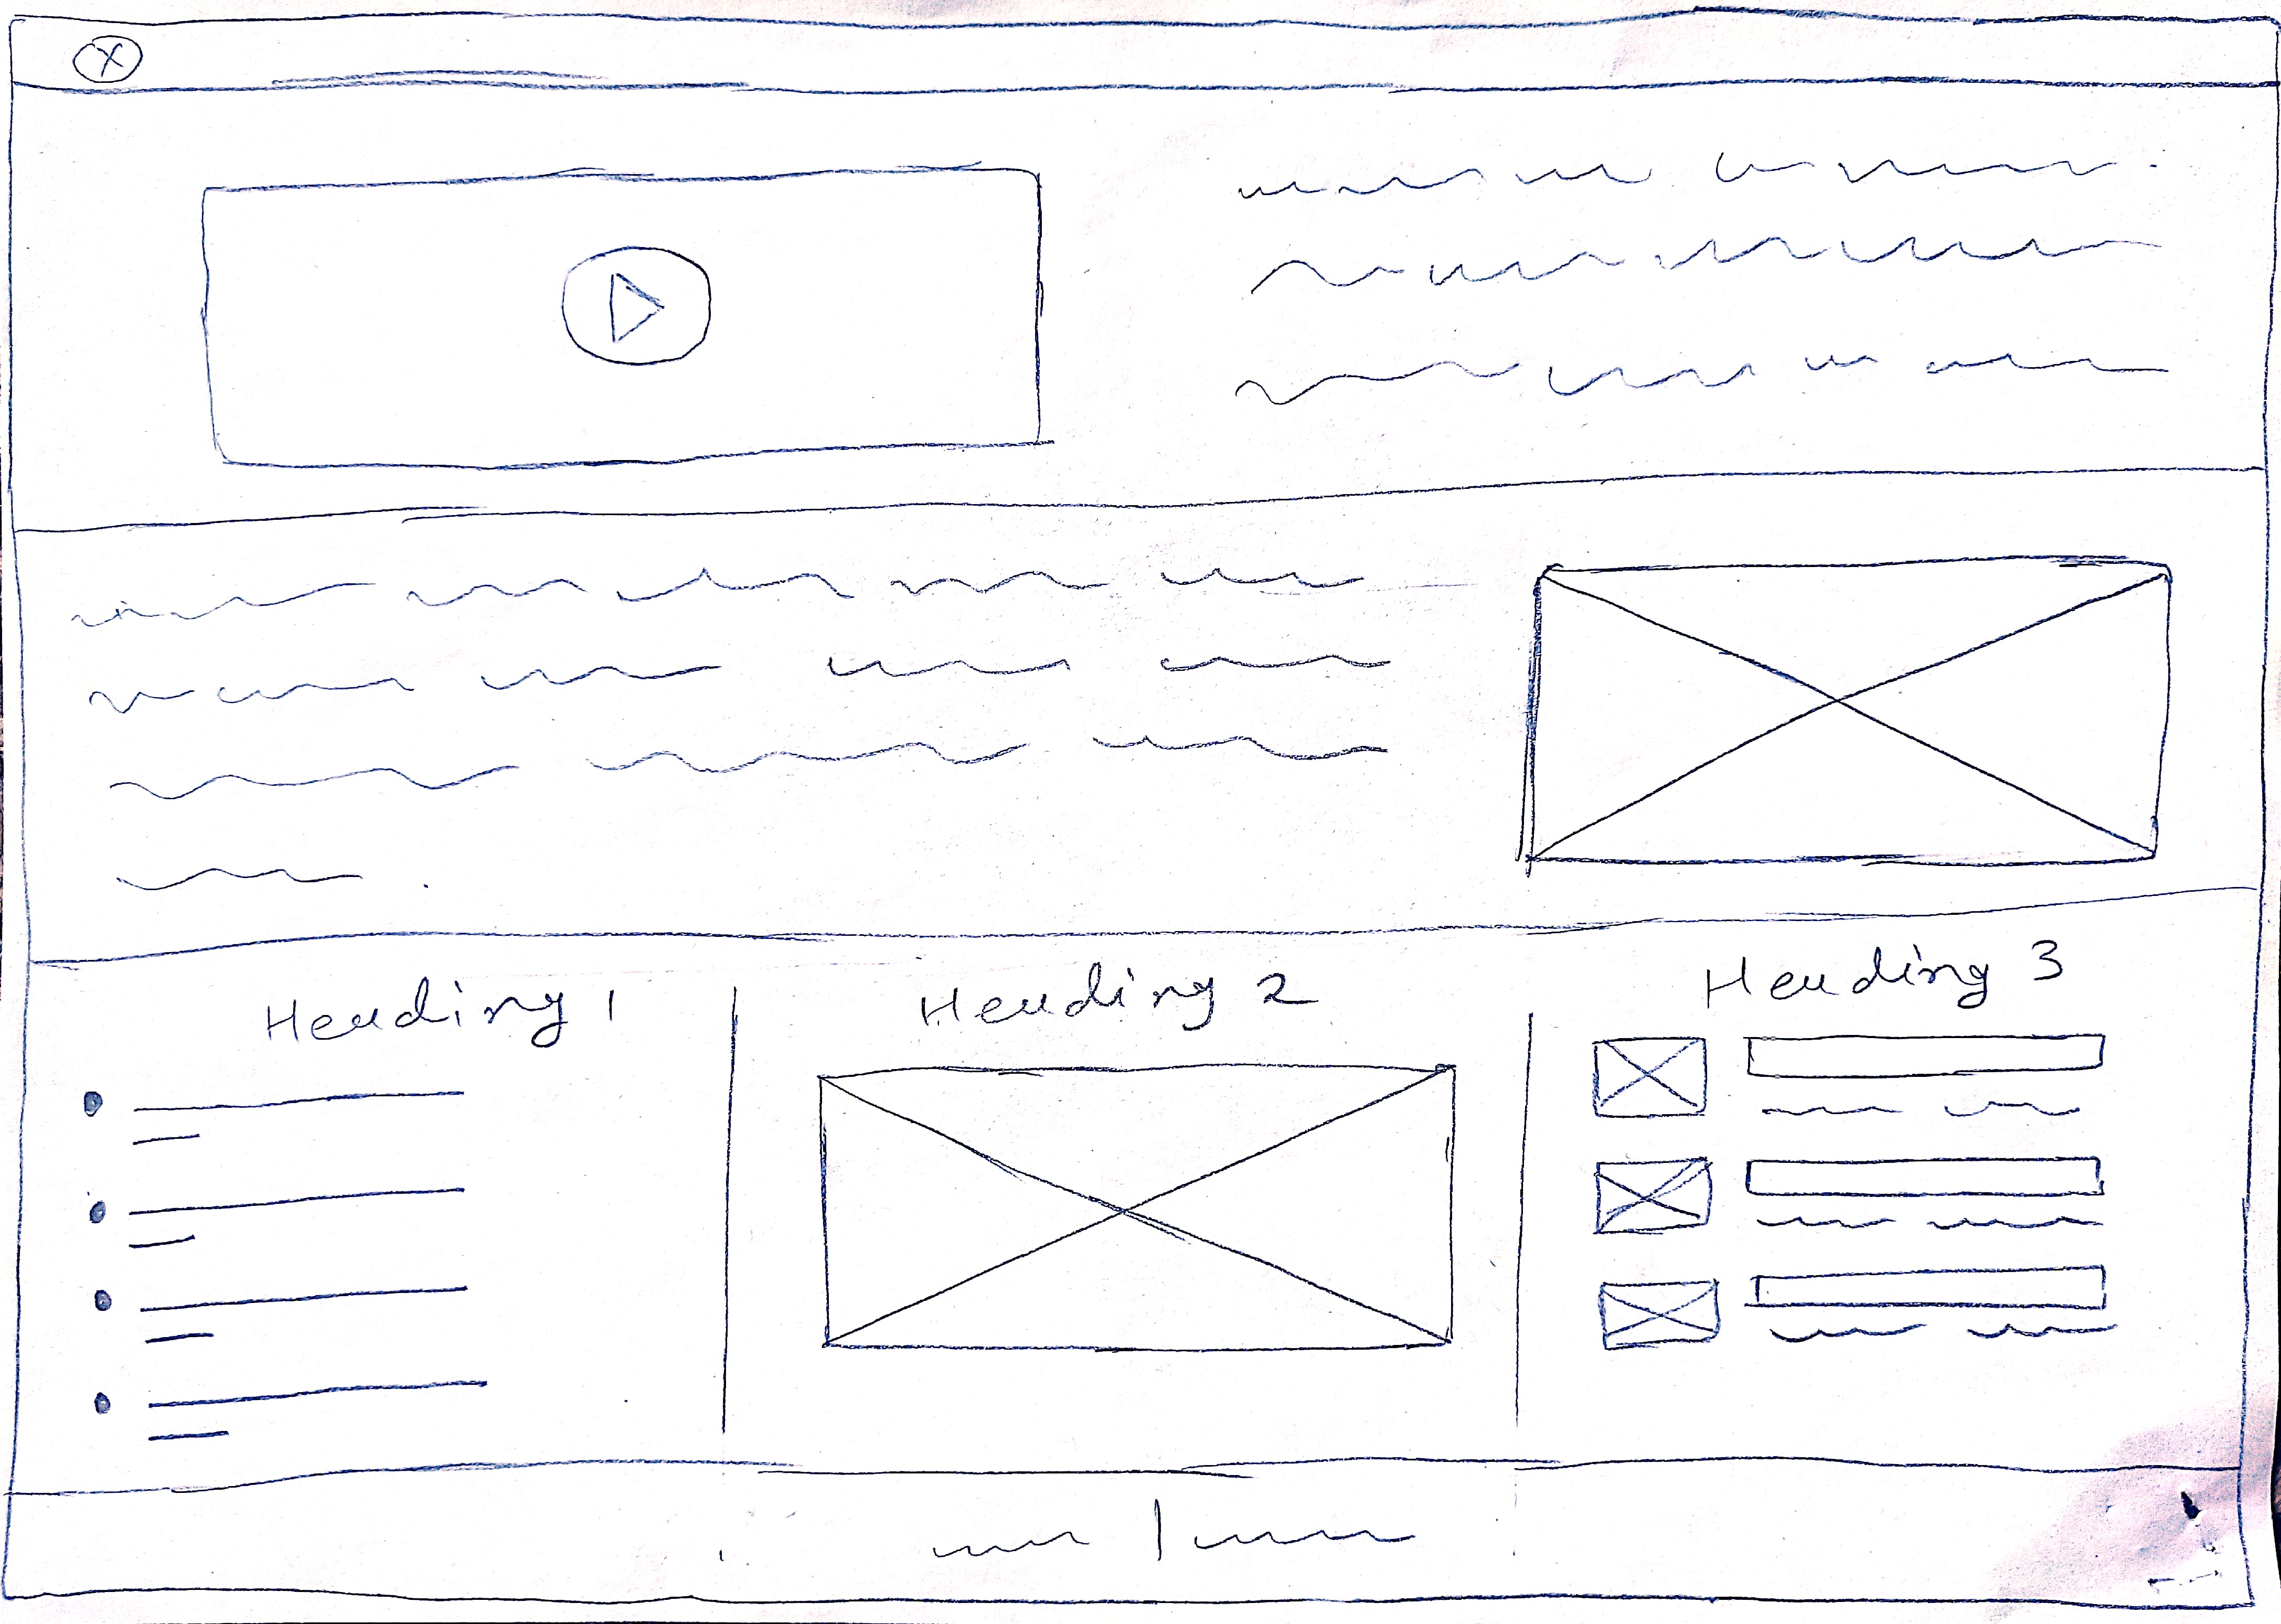 Heading 1
Heading 2
Heading 3